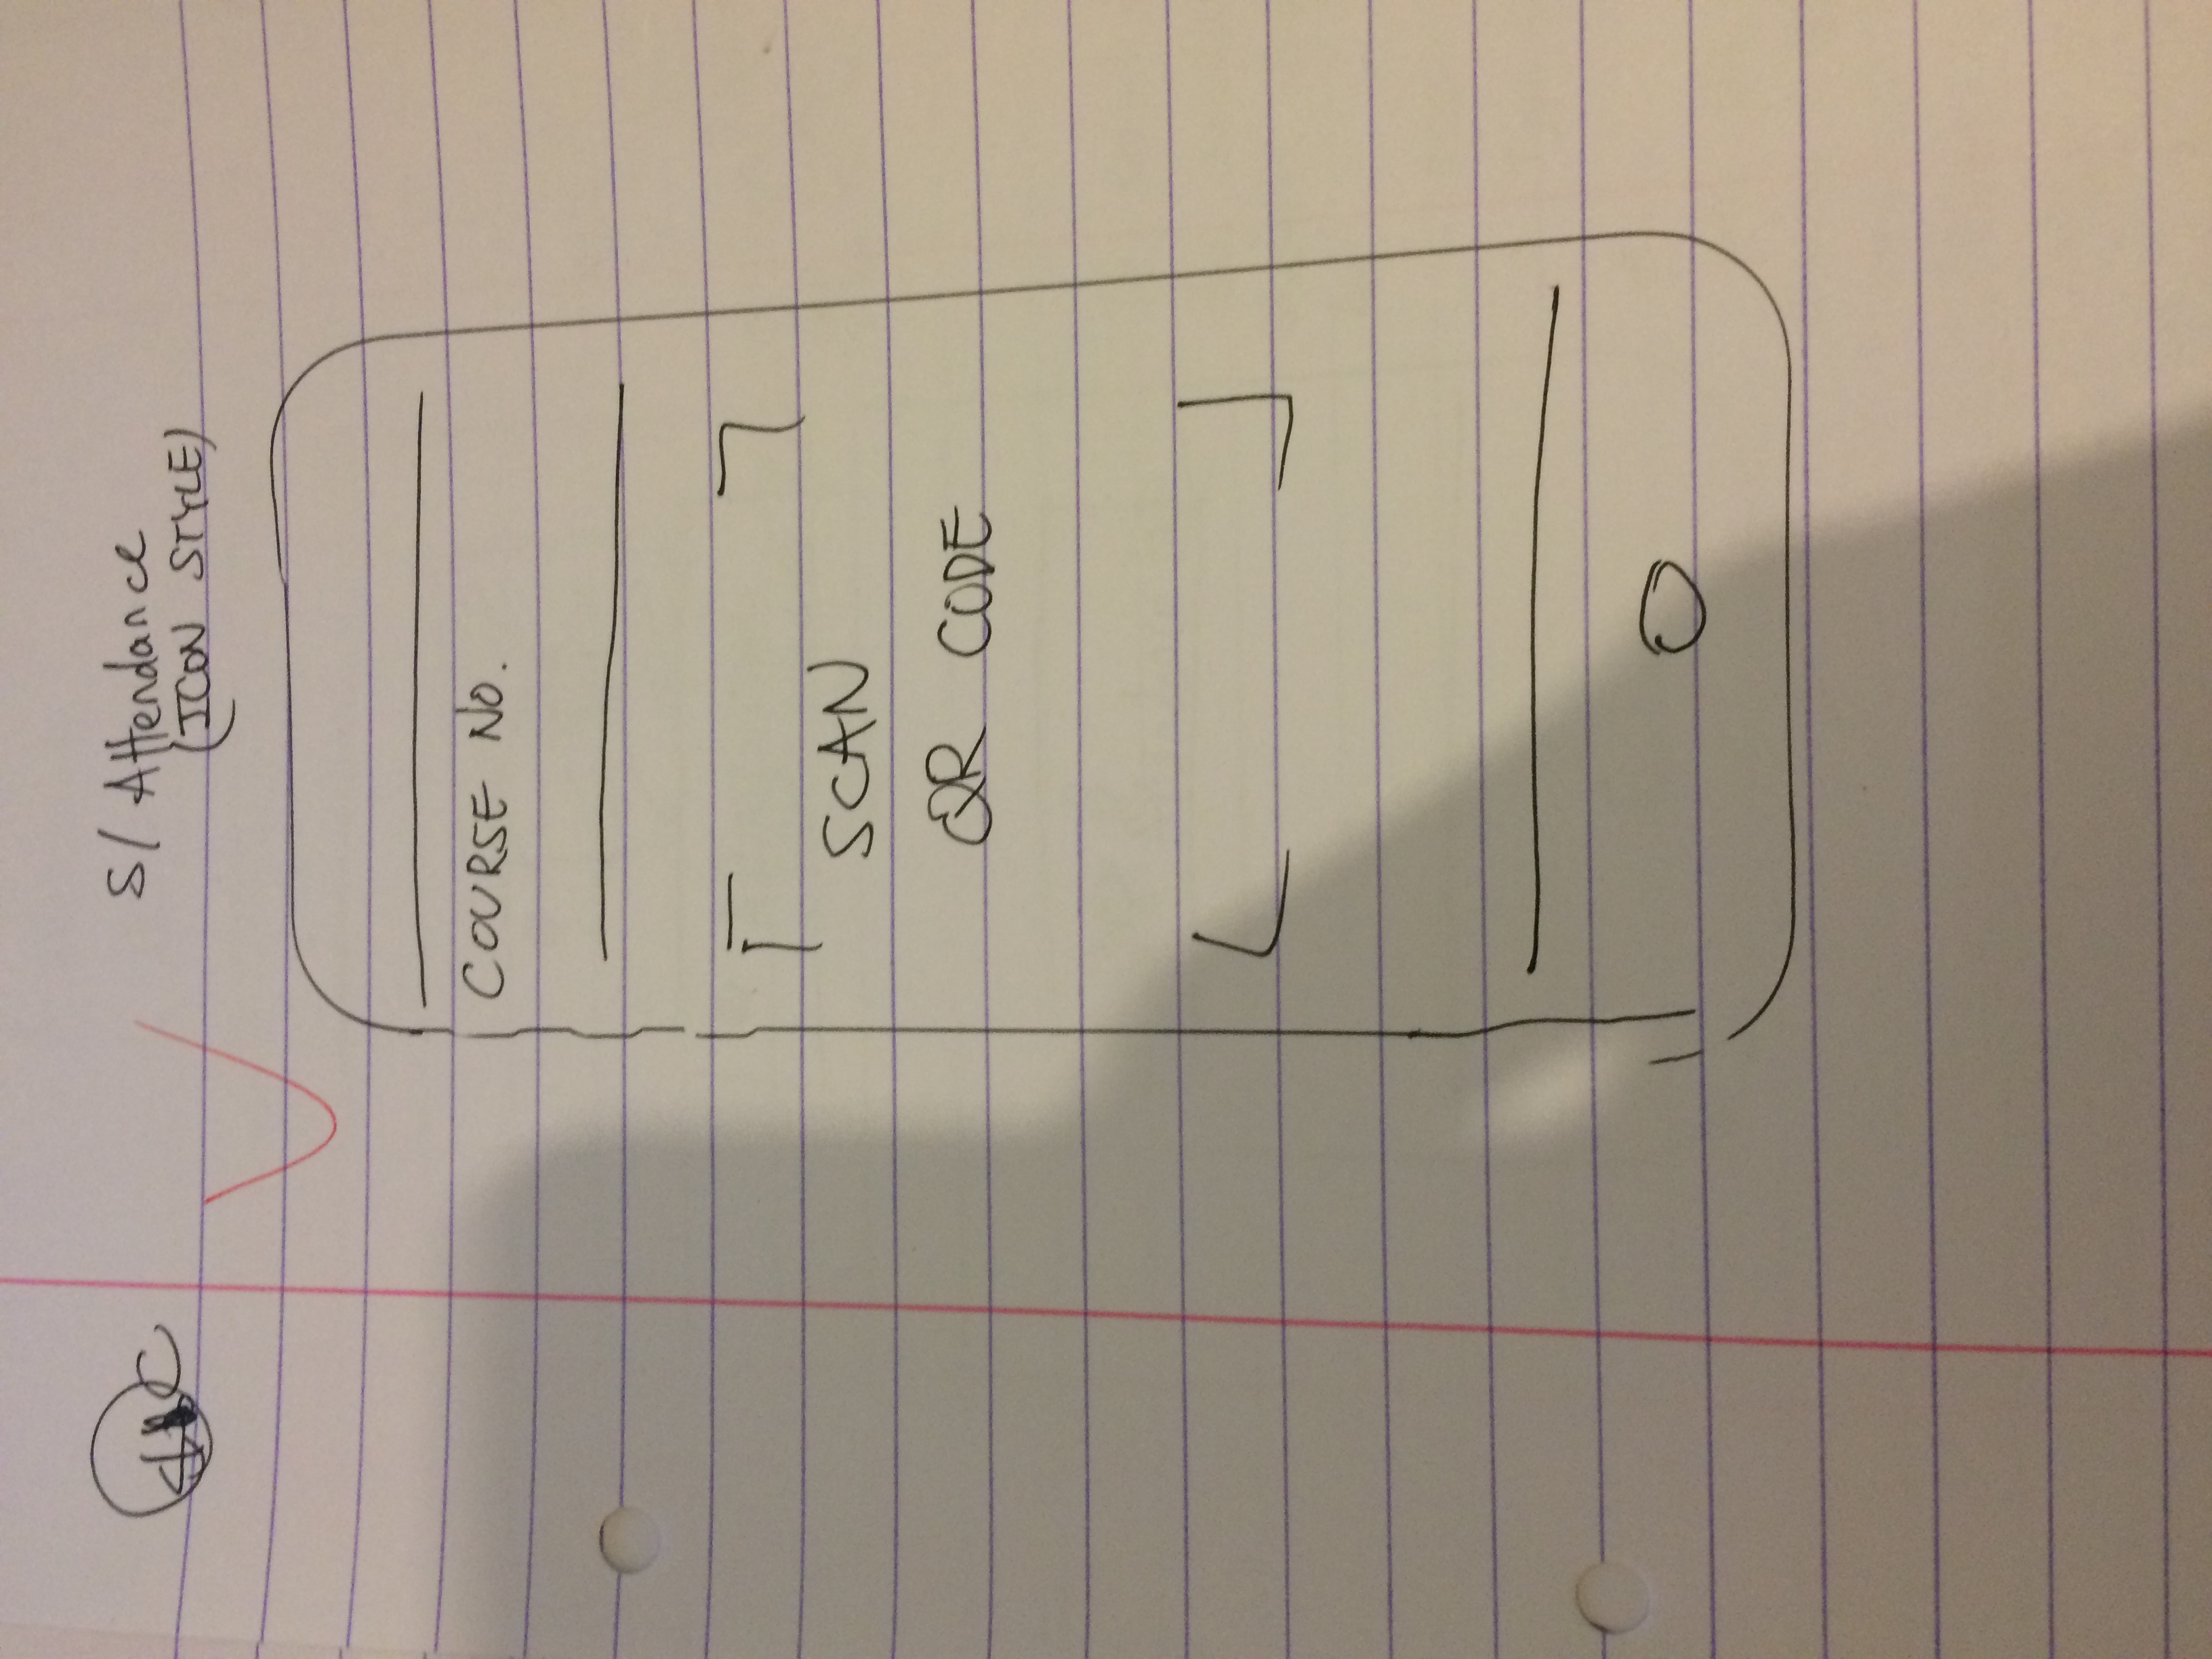 S/ Attendance
(ICON STYLE)
COURSE NO.
SCAN
QR CODE